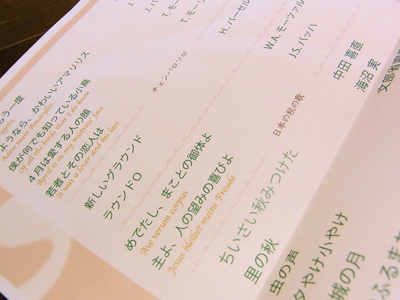 もう一度
さようなら、かわいいアマリリス
僕が何でも知っている小鳥
Of all the birds that I do know
4月は愛する人の顔
April is in my mistress' face
若者とその恋人は
It was a lover and his lass
チェンバロソロ
新しいグラウンド
H.パーセル
ラウンドO
めでたし、まことの御体よ
W.A.モーツァル
Ave verum corpus
主よ、人の望みの喜びよ
J.S.バッハ
Jesus bleibet meine Freude
日本の秋の歌
ちいさい秋みつけた
中田 喜直
里の秋
海沼 実
虫の声
文部省
夕やけ小やけ
城の月
ふるさ